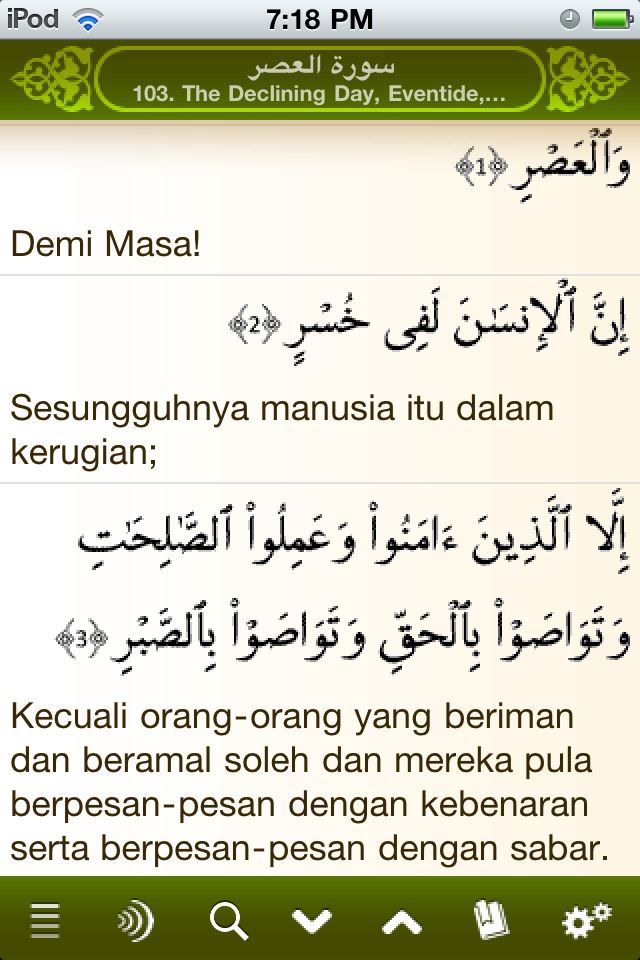 iPod 7:18 PM
سورة العصر
103. The Declining Day, Eventide,...
وَٱلْعَصْرِ ﴿1﴾
Demi Masa!
إِنَّ ٱلْإِنسَٰنَ لَفِى خُسْرٍ ﴿2﴾
Sesungguhnya manusia itu dalam
kerugian;
إِلَّا ٱلَّذِينَ ءَامَنُوا۟ وَعَمِلُوا۟ ٱلصَّٰلِحَٰتِ
وَتَوَاصَوْا۟ بِٱلْحَقِّ وَتَوَاصَوْا۟ بِٱلصَّبْرِ ﴿3﴾
Kecuali orang-orang yang beriman
dan beramal soleh dan mereka pula
berpesan-pesan dengan kebenaran
serta berpesan-pesan dengan sabar.